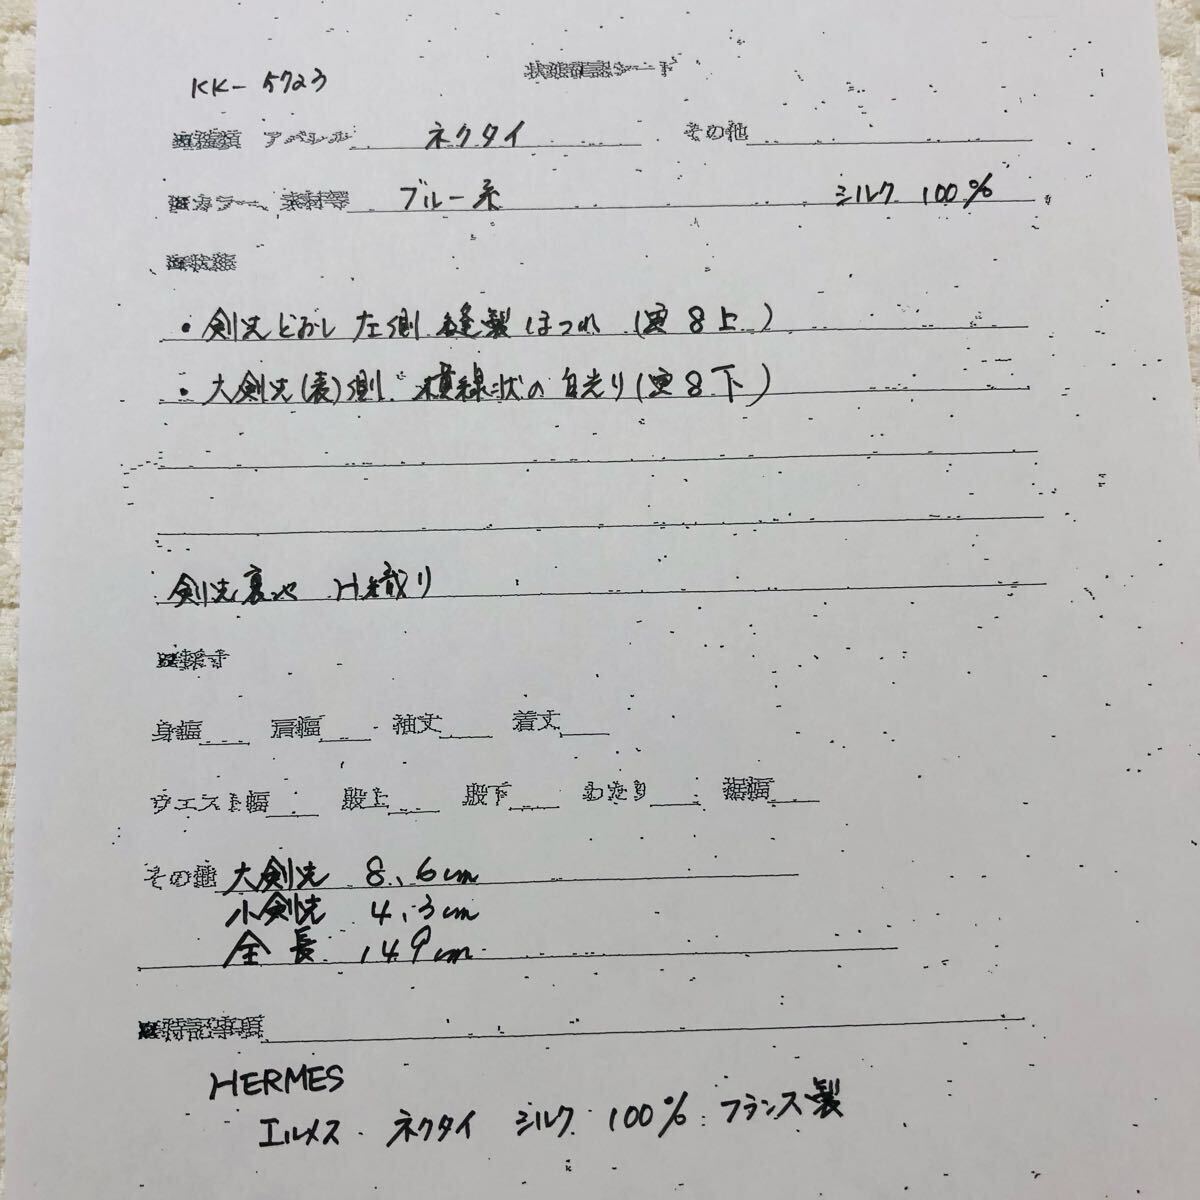 状態確認シート
KK-5723
※種類 アパレル ネクタイ その他
※カラー、素材等 ブルー系 シルク 100%
※状態
・剣先どおし 左側 縫製 ほつれ (実8上)
・大剣先(表)側 横線状の 白光り(実8下)
剣先裏地 H織り
※採寸
身幅 肩幅 袖丈 着丈
ウエスト幅 股上 股下 わたり 裾幅
その他 大剣先 8.6cm
小剣先 4.3cm
全長 149cm
※特記事項
HERMES
エルメス ネクタイ シルク 100% フランス製